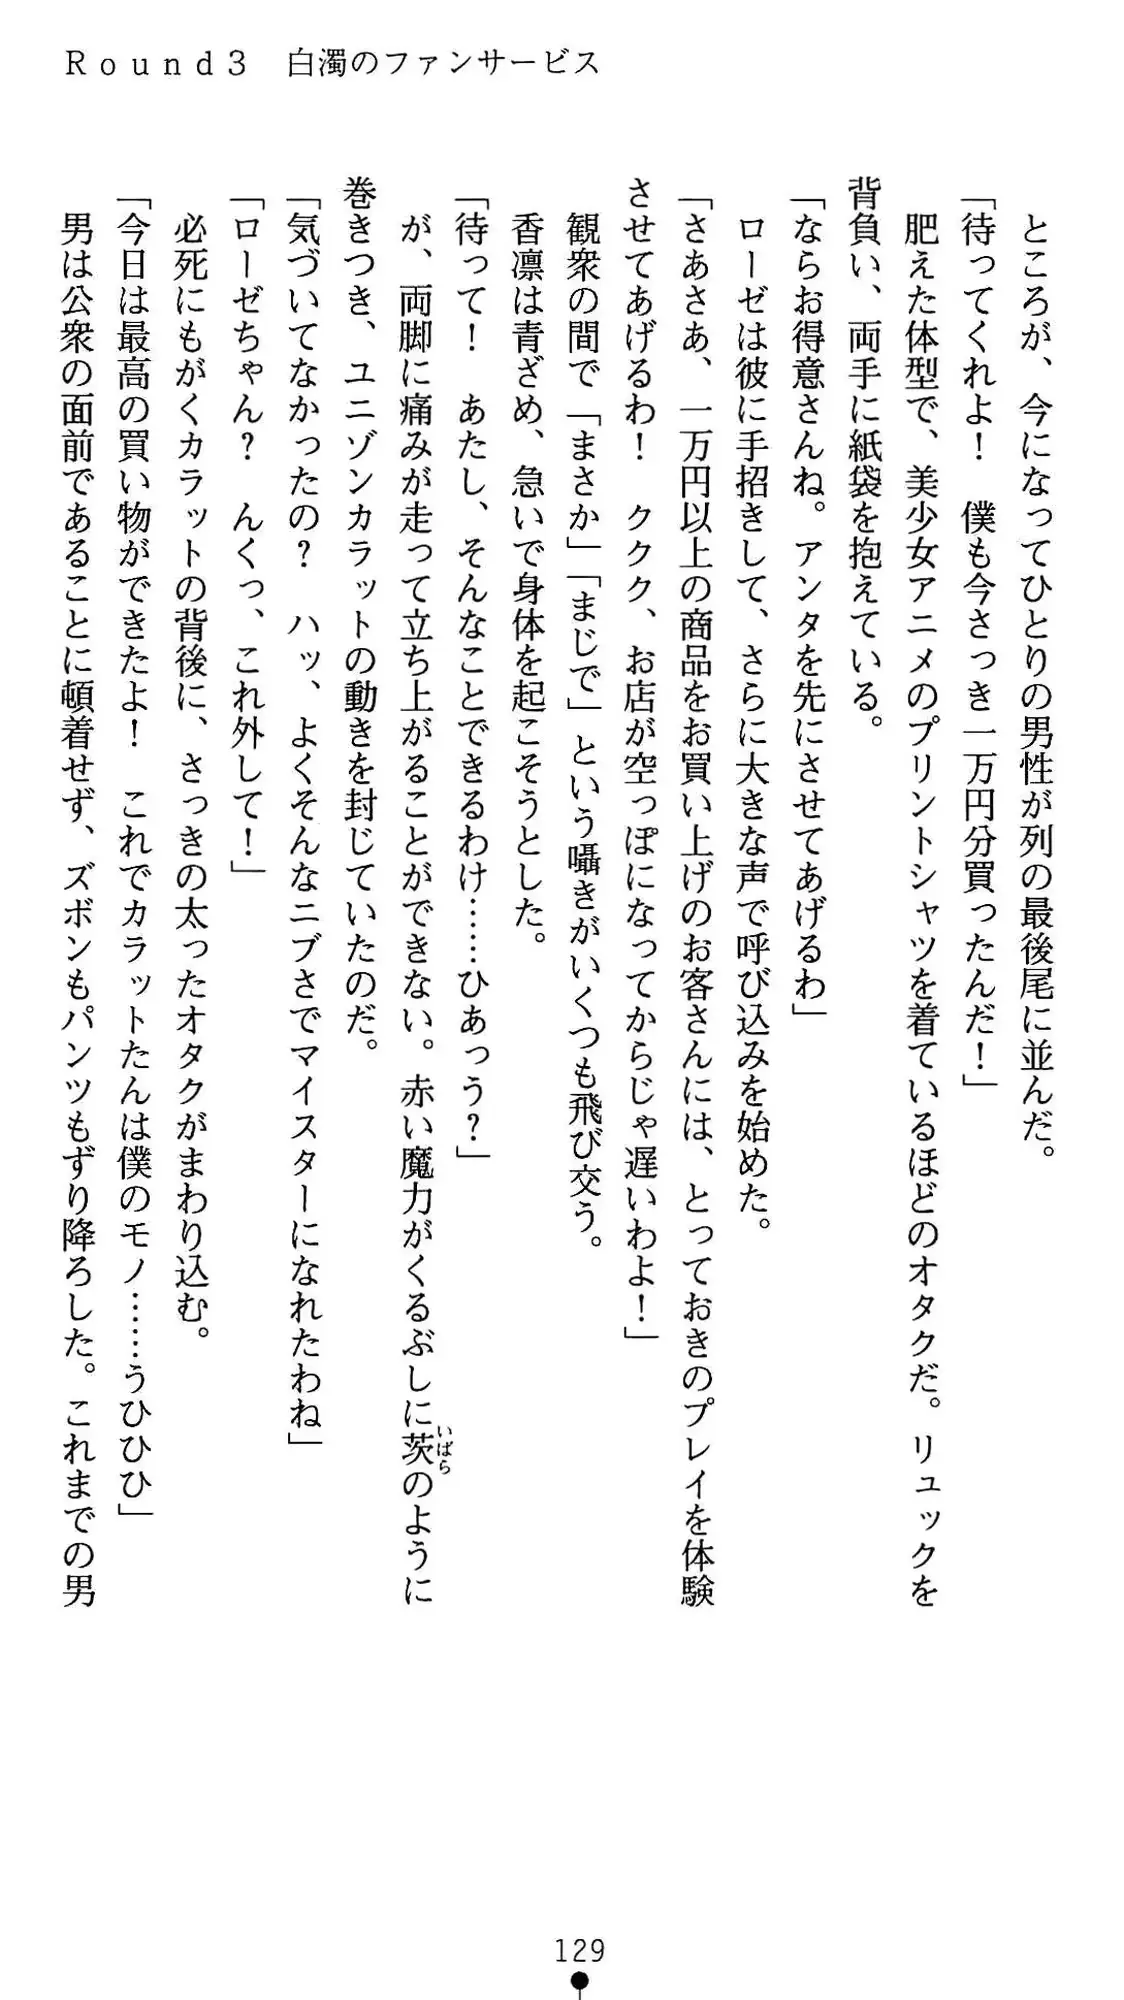 Round3 白濁のファンサービス
ところが、今になってひとりの男性が列の最後尾に並んだ。
「待ってくれよ！　僕も今さっき一万円分買ったんだ！」
肥えた体型で、美少女アニメのプリントシャツを着ているほどのオタクだ。リュックを
背負い、両手に紙袋を抱えている。
「ならお得意さんね。アンタを先にさせてあげるわ」
ローゼは彼に手招きして、さらに大きな声で呼び込みを始めた。
「さあさあ、一万円以上の商品をお買い上げのお客さんには、とっておきのプレイを体験
させてあげるわ！　ククク、お店が空っぽになってからじゃ遅いわよ！」
観衆の間で「まさか」「まじで」という囁きがいくつも飛び交う。
香凛は青ざめ、急いで身体を起こそうとした。
「待って！　あたし、そんなことできるわけ……ひあっう？」
が、両脚に痛みが走って立ち上がることができない。赤い魔力がくるぶしに茨のように
いばら
巻きつき、ユニゾンカラットの動きを封じていたのだ。
「気づいてなかったの？　ハッ、よくそんなニブさでマイスターになれたわね」
「ローゼちゃん？　んくっ、これ外して！」
必死にもがくカラットの背後に、さっきの太ったオタクがまわり込む。
「今日は最高の買い物ができたよ！　これでカラットたんは僕のモノ……うひひひ」
男は公衆の面前であることに頓着せず、ズボンもパンツもずり降ろした。これまでの男
129